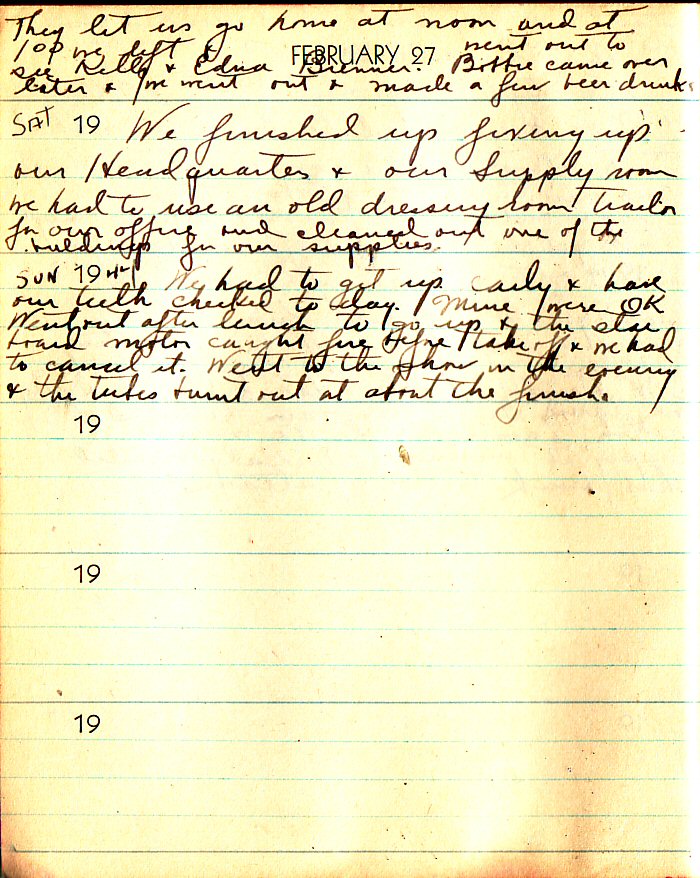 They let us go home at noon and at
100 we left & went out to
FEBRUARY 27
see Kelly & Edna Brenner. Bobbie came over
later & we went out & made a few beer drinks
SAT 19 We finished up fixing up
our Headquarters & our Supply room
we had to use an old dressing room trailor
for our office and cleaned out one of the
buildings for our supplies.
SUN 1944 We had to get up early & have
our teeth checked to day. Mine were OK
Went out after lunch to go up & the star
board motor caught fire before take off & we had
to cancel it. Went to the show in the evening
& the tubes burnt out at about the finish.
19
19
19